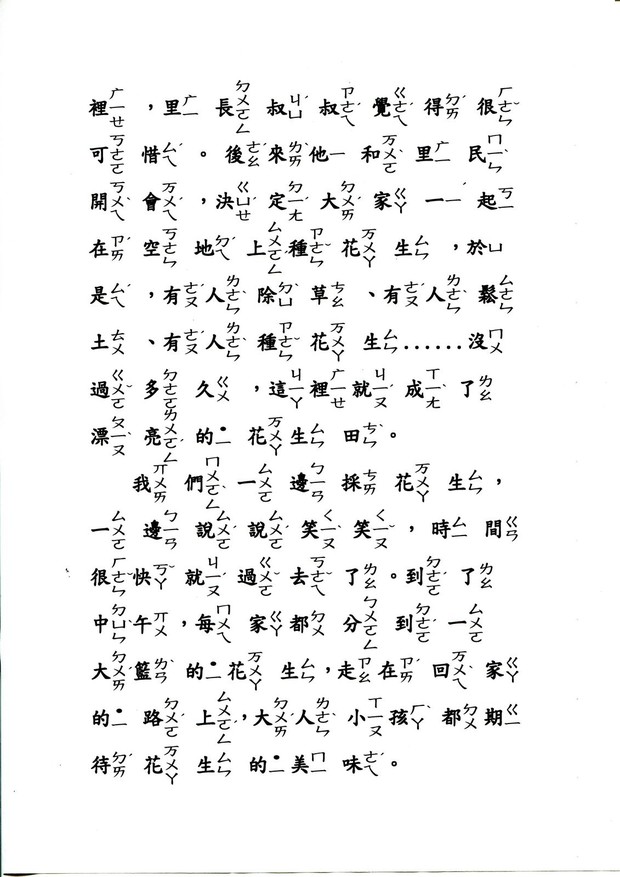 裡，里長叔叔覺得很
可惜。後來他和里民
開會，決定大家一起
在空地上種花生，於
是，有人除草、有人鬆
土、有人種花生......沒
過多久，這裡就成了
漂亮的花生田。
我們一邊採花生，
一邊說說笑笑，時間
很快就過去了。到了
中午，每家都分到一
大籃的花生，走在回家
的路上，大人小孩都期
待花生的美味。